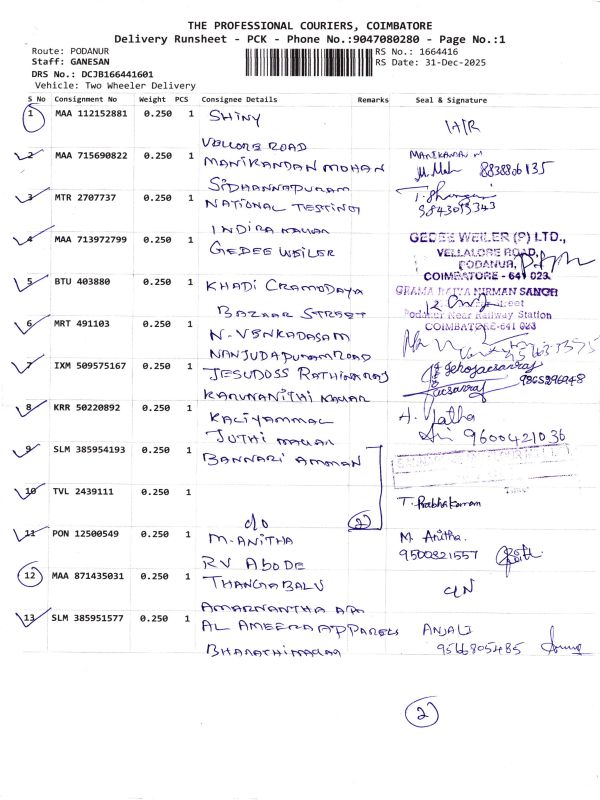 THE PROFESSIONAL COURIERS, COIMBATORE
Delivery Runsheet - PCK - Phone No.:9047080280 - Page No.:1
Route: PODANUR RS No.: 1664416
Staff: GANESAN RS Date: 31-Dec-2025
DRS No.: DCJB166441601
Vehicle: Two Wheeler Delivery
S No Consignment No Weight PCS Consignee Details Remarks Seal & Signature
1 MAA 112152881 0.250 1 SHINY
VELLORE ROAD
2 MAA 715690822 0.250 1 MANIKANDAN MOHAN 8838806135
SIDHANNAPURAM
3 MTR 2707737 0.250 1 NATIONAL TESTING
INDIRA NAGAR
4 MAA 713972799 0.250 1 GEDEE WEILER GEDEE WEILER (P) LTD.,
VELLALORE ROAD,
PODANUR,
COIMBATORE - 641 023.
5 BTU 403880 0.250 1 KHADI GRAMODAYA
BAZAAR STREET Podanur Near Railway Station
6 MRT 491103 0.250 1 N. VENKADASAM COIMBATORE-641 023
NANJUDAPURAM ROAD
7 IXM 509575167 0.250 1 JESUDOSS RATHINARAJ
KARUNANITHI NAGAR
8 KRR 50220892 0.250 1 KALIYAMMAL H. Latha
JOTHI NAGAR 9600421036
9 SLM 385954193 0.250 1 BANNARI AMMAN
10 TVL 2439111 0.250 1 T. Prabhakaran
c/o 2
11 PON 12500549 0.250 1 M. ANITHA M. Anitha.
RV ABODE 9500821557
12 MAA 871435031 0.250 1 THANGABALU
AMARNANTHA APA
13 SLM 385951577 0.250 1 AL AMEERA APPARELS ANJALI
BHARATHI NAGAR 9566805485
2